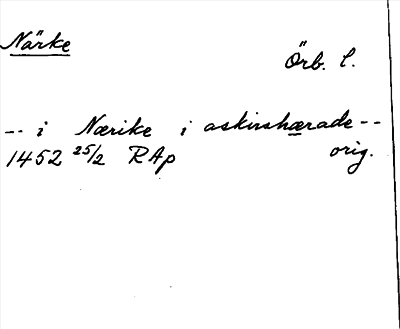 Närke
Örb. l.
-- i Nærike i askirshærade --
1452 25/2 RAp orig.